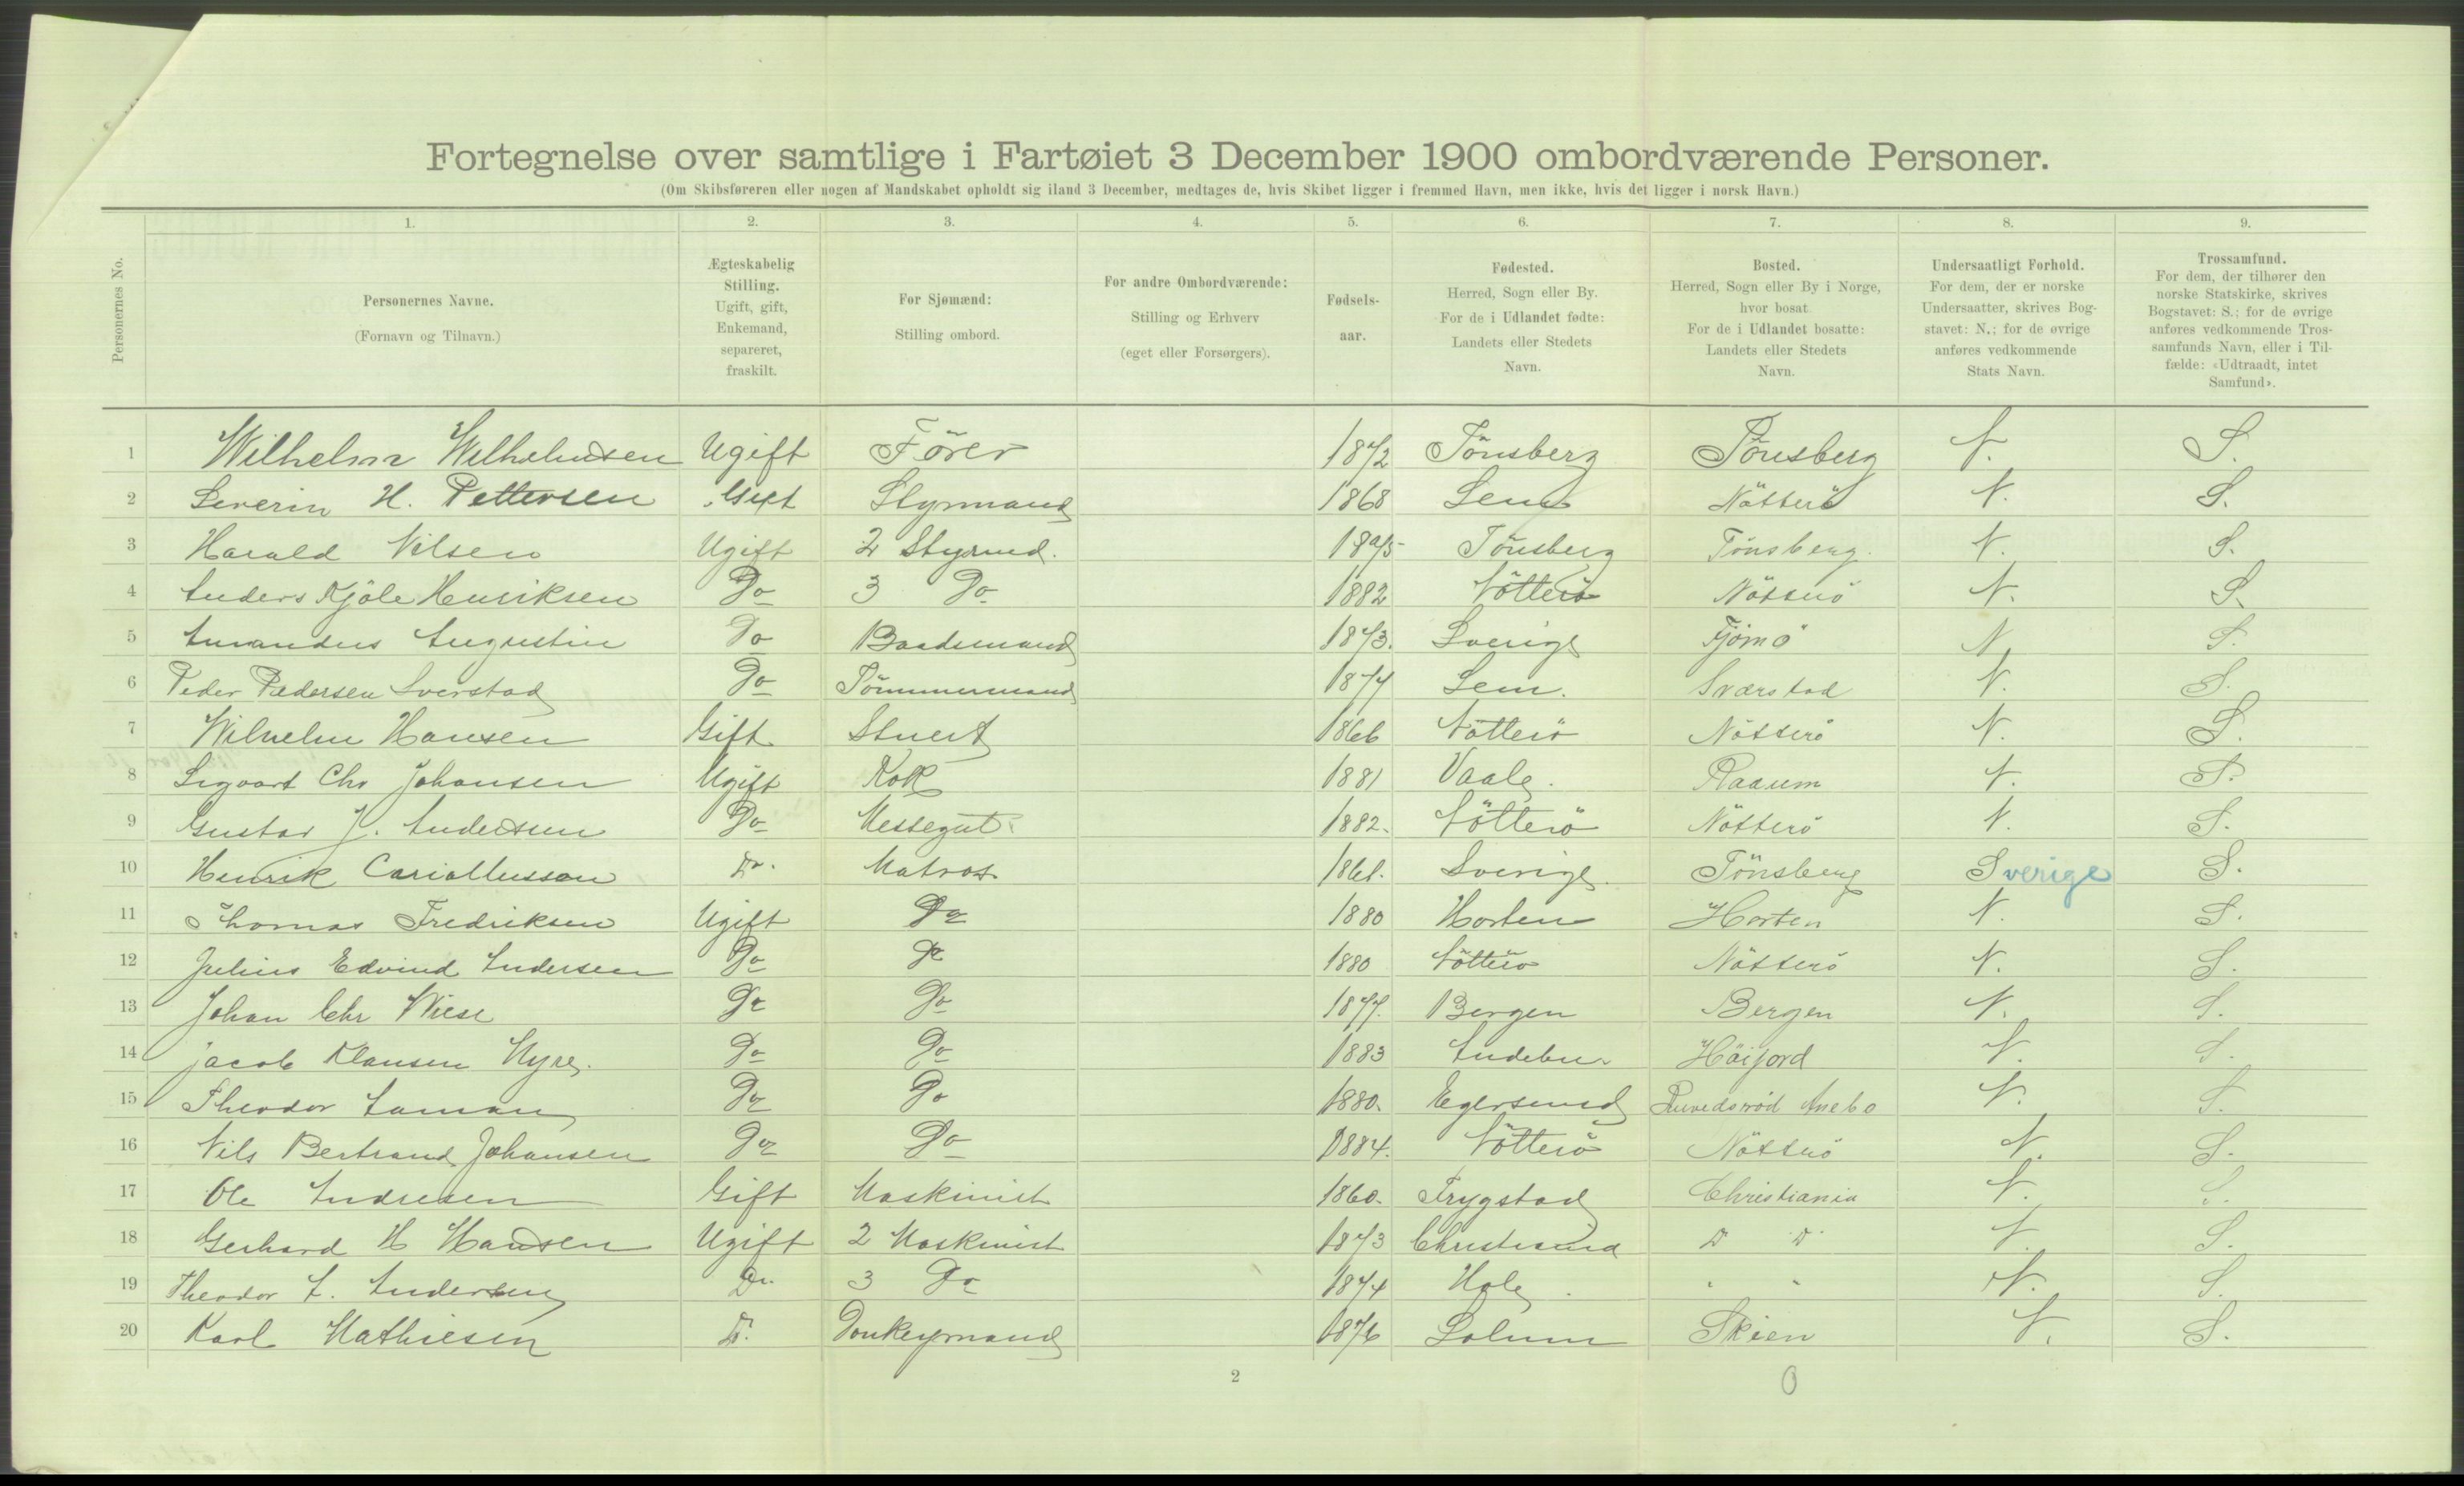 Fortegnelse over samtlige i Fartøiet 3 December 1900 ombordværende Personer.
(Om Skibsføreren eller nogen af Mandskabet opholdt sig iland 3 December, medtages de, hvis Skibet ligger i fremmed Havn, men ikke, hvis det ligger i norsk Havn.)
1. 2. 3. 4. 5. 6. 7. 8. 9.
Personernes No.
Personernes Navne.
(Fornavn og Tilnavn.)
Ægteskabelig
Stilling.
Ugift, gift,
Enkemand,
separeret,
fraskilt.
For Sjømænd:
Stilling ombord.
For andre Ombordværende:
Stilling og Erhverv
(eget eller Forsørgers).
Fødsels-
aar.
Fødested.
Herred, Sogn eller By.
For de i Udlandet fødte:
Landets eller Stedets
Navn.
Bosted.
Herred, Sogn eller By i Norge,
hvor bosat
For de i Udlandet bosatte:
Landets eller Stedets
Navn.
Undersaatligt Forhold.
For dem, der er norske
Undersaatter, skrives Bog-
stavet: N.; for de øvrige
anføres vedkommende
Stats Navn.
Trossamfund.
For dem, der tilhører den
norske Statskirke, skrives
Bogstavet: S.; for de øvrige
anføres vedkommende Tros-
samfunds Navn, eller i Til-
fælde: «Udtraadt, intet
Samfund».
1 Wilhelm Wilhelmsen Ugift Förer 1872 Tönsberg Tönsberg N. S.
2 Severin H. Pettersen Gift Styrmand 1868 Sem Nötterö N. S.
3 Harald Nilsen Ugift 2 Styrmd. 1875 Tönsberg Tönsberg. N. S.
4 Anders Kjöle Henriksen Do 3 Do 1882 Nötterö Nötterö N. S.
5 Amandus Augustin Do Baadsmand 1873. Sverige Tjömö N S.
6 Peder Pedersen Sverstad Do Tömmermand 1874 Sem. Sværstad N. S.
7 Wilhelm Hansen Gift Stuert 1866 Nötterö Nötterö N. S.
8 Sigvart Chr Johansen Ugift Kok 1881 Vaale. Raaum N. S.
9 Gustav J. Andersen Do Messegut 1882. Nötterö Nötterö N. S.
10 Henrik Do. Matros 1861. Sverige. Tönsberg Sverige S.
11 Thomas Fredriksen Ugift Do 1880 Horten Horten N. S.
12 Julius Edvind Andersen Do Do 1880 Nötterö Nötterö N. S.
13 Johan Chr Wiese Do Do 1877. Bergen Bergen N. S.
14 Jacob Klausen Myre. Do Do 1883 Andebu. Höijord N. S.
15 Theodor Aaman Do Do 1880. Egersund Anebo N. S.
16 Nils Bertrand Johansen Do Do 1884. Nötterö Nötterö N. S.
17 Ole Andresen Gift Maskinist 1860. Trygstad Christiania N. S.
18 Gerhard H Hansen Ugift 2 Maskinist 1873 Christiania D D N. S.
19 Theodor A. Andersen Do. 3 Do 1874 Hole. " " N. S.
20 Karl Mathiesen D. Donkeymand 1876 Solum Skien N. S.
2
0